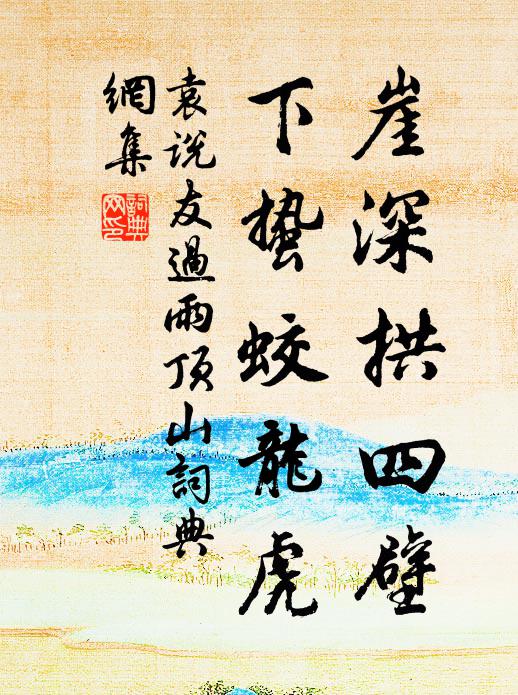 崖深拱四壁
下蟄蛟龍虎
袁説友過雨頂山詞典
網集
詞典
网印